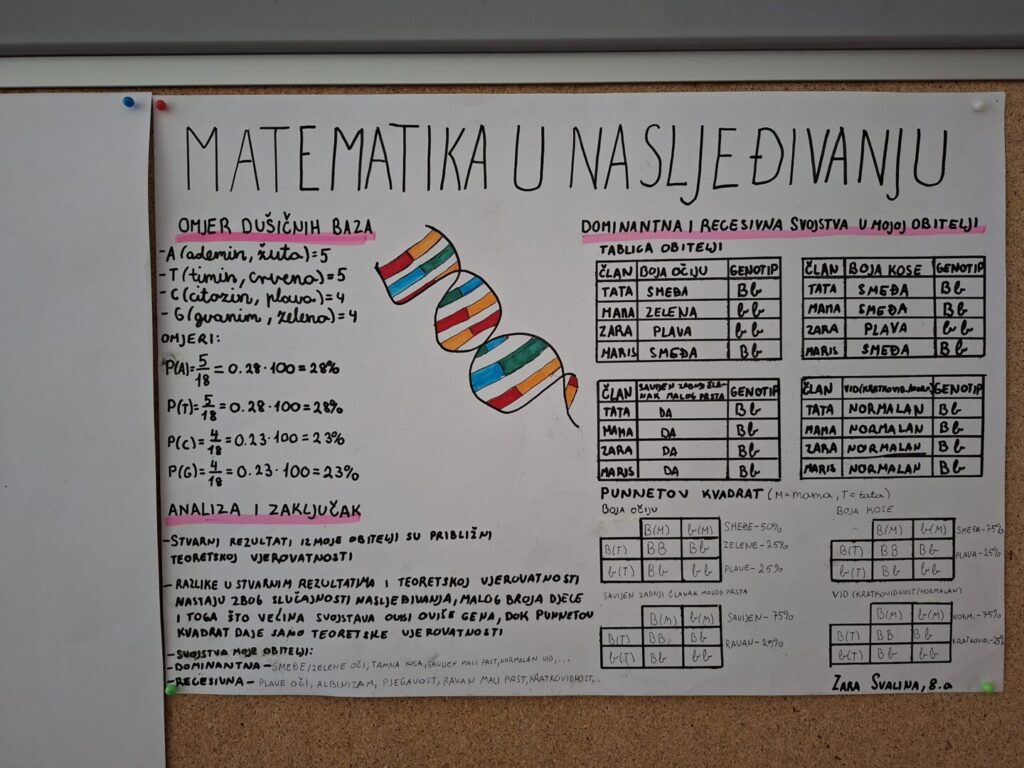 MATEMATIKA U NASLJEĐIVANJU
OMJER DUŠIČNIH BAZA
-A (ademin, žuta) = 5
-T (timin, crvena) = 5
-C (citozin, plava) = 4
-G (gvanim, zelena) = 4
OMJERI:
P(A) = 5/18 = 0.28 · 100 = 28%
P(T) = 5/18 = 0.28 · 100 = 28%
P(C) = 4/18 = 0.23 · 100 = 23%
P(G) = 4/18 = 0.23 · 100 = 23%
ANALIZA I ZAKLJUČAK
-STVARNI REZULTATI IZ MOJE OBITELJI SU PRIBLIŽNI
TEORETSKOJ VJEROVATNOSTI
-RAZLIKE U STVARNIM REZULTATIMA I TEORETSKOJ VJEROVATNOSTI
NASTAJU ZBOG SLUČAJNOSTI NASLJEĐIVANJA, MALOG BROJA DJECE
I TOGA ŠTO VEĆINA SVOJSTAVA OVISI O VIŠE GENA, DOK PUNNETOV
KVADRAT DAJE SAMO TEORETSKE VJEROVATNOSTI
-SVOJSTVA MOJE OBITELJI:
-DOMINANTNA - SMEĐE/ZELENE OČI, TAMNA KOSA, SAVIJEN MALI PRST, NORMALAN VID,...
-RECESIVNA - PLAVE OČI, ALBINIZAM, PJEGAVOST, RAVAN MALI PRST, KRATKOVIDNOST,...
DOMINANTNA I RECESIVNA SVOJSTVA U MOJOJ OBITELJI
TABLICA OBITELJI
ČLAN BOJA OČIJU GENOTIP
TATA SMEĐA Bb
MAMA ZELENA bb
ZARA PLAVA bb
MARIS SMEĐA Bb
ČLAN BOJA KOSE GENOTIP
TATA SMEĐA Bb
MAMA SMEĐA Bb
ZARA PLAVA bb
MARIS SMEĐA Bb
ČLAN SAVIJEN ZADNJI ČLA-
NAK MALOG PRSTA GENOTIP
TATA DA Bb
MAMA DA Bb
ZARA DA Bb
MARIS DA Bb
ČLAN GENOTIP
TATA NORMALAN Bb
MAMA NORMALAN Bb
ZARA NORMALAN Bb
MARIS NORMALAN Bb
PUNNETOV KVADRAT (M=mama, T=tata)
BOJA OČIJU
B(M) b(M)
B(T) BB Bb
b(T) Bb bb
SMEĐE-50%
ZELENE-25%
PLAVE-25%
BOJA KOSE
B(M) b(M)
B(T) BB Bb
b(T) Bb bb
SMEĐA-75%
PLAVA-25%
SAVIJEN ZADNJI ČLANAK MALOG PRSTA
B(M) b(M)
B(T) BB Bb
b(T) Bb bb
SAVIJEN-75%
RAVAN-25%
VID (KRATKOVIDNOST/NORMALAN)
B(M) b(M)
B(T) BB Bb
b(T) Bb bb
NORM.-75%
KRATKOVID.-25%
ZARA SVALINA, 8.a